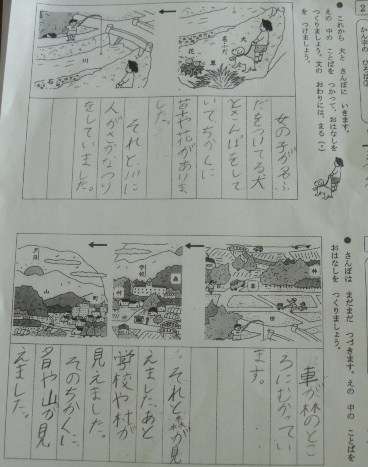 これから 犬と さんぽに いきます。
えの 中の ことばを つかって、おはなしを
つくりましょう。文の おわりには、まる(。)
を つけましょう。
犬
名ふだ
草
花
川
石
女の子が名ふ
だをつけてる犬
とさんぽをして
いてちかくに
草や花がありま
した。
それと川に
人がさかなつり
をしていました。
さんぽは まだまだ つづきます。えの 中の ことばを
おはなしを つくりましょう。
林
車
田
森
学校
村
夕日
山
町
車が林のとこ
ろにむかってい
ます。
それと森が見
えましたあと
学校や村が
見えました。
そのちかくに
や山が見
えました。